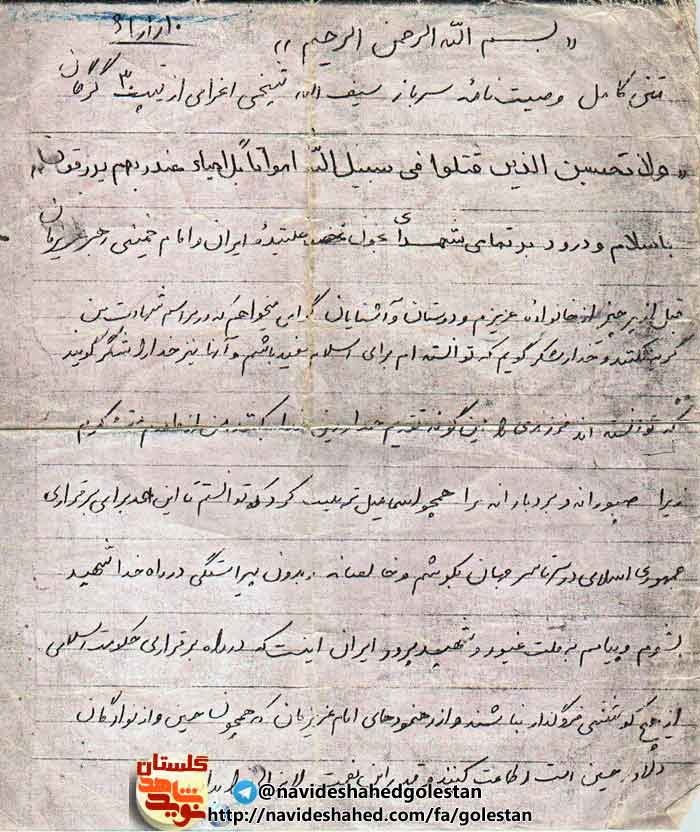 «بسم الله الرحمن الرحیم»
متن کامل وصیت نامه سرباز سیف الله شیخی اعزامی از تیپ ۳۰ گرگان
«ولا تحسبن الذین قتلوا فی سبیل الله امواتا بل احیاء عند ربهم یرزقون»
با سلام و درود بر تمامی شهدای ایران و امام خمینی رهبر عزیزمان
قبل از هر چیز از خانواده عزیزم و دوستان و آشنایان گرامی میخواهم که در مراسم شهادت من
گریه نکنند و خدا را شکر گویم که توانسته ام برای اسلام مفید باشم و آنها نیز خدا را شکر گویند
که توانسته اند فرزندی را این گونه تقدیم خدا
زیرا صبورانه و بردبارانه مرا همچو اسماعیل تربیت کرد که توانستم تا این حد برای برقراری
جمهوری اسلامی در سرتاسر جهان بکوشم و خالصانه و بدون پیراستگی در راه خدا شهید
بشوم و پیامم به ملت غیور و شهید پرور ایران اینست که در راه برقراری حکومت اسلامی
از هیچ کوششی فروگذار نباشند و از رهنمودهای امام عزیزمان که همچون حسین و از نوادگان
حسین است اطاعت کنند و قدر این نعمت
گلستان
نوید شاهد
@navideshahedgolestan
https://navideshahed.com/fa/golestan